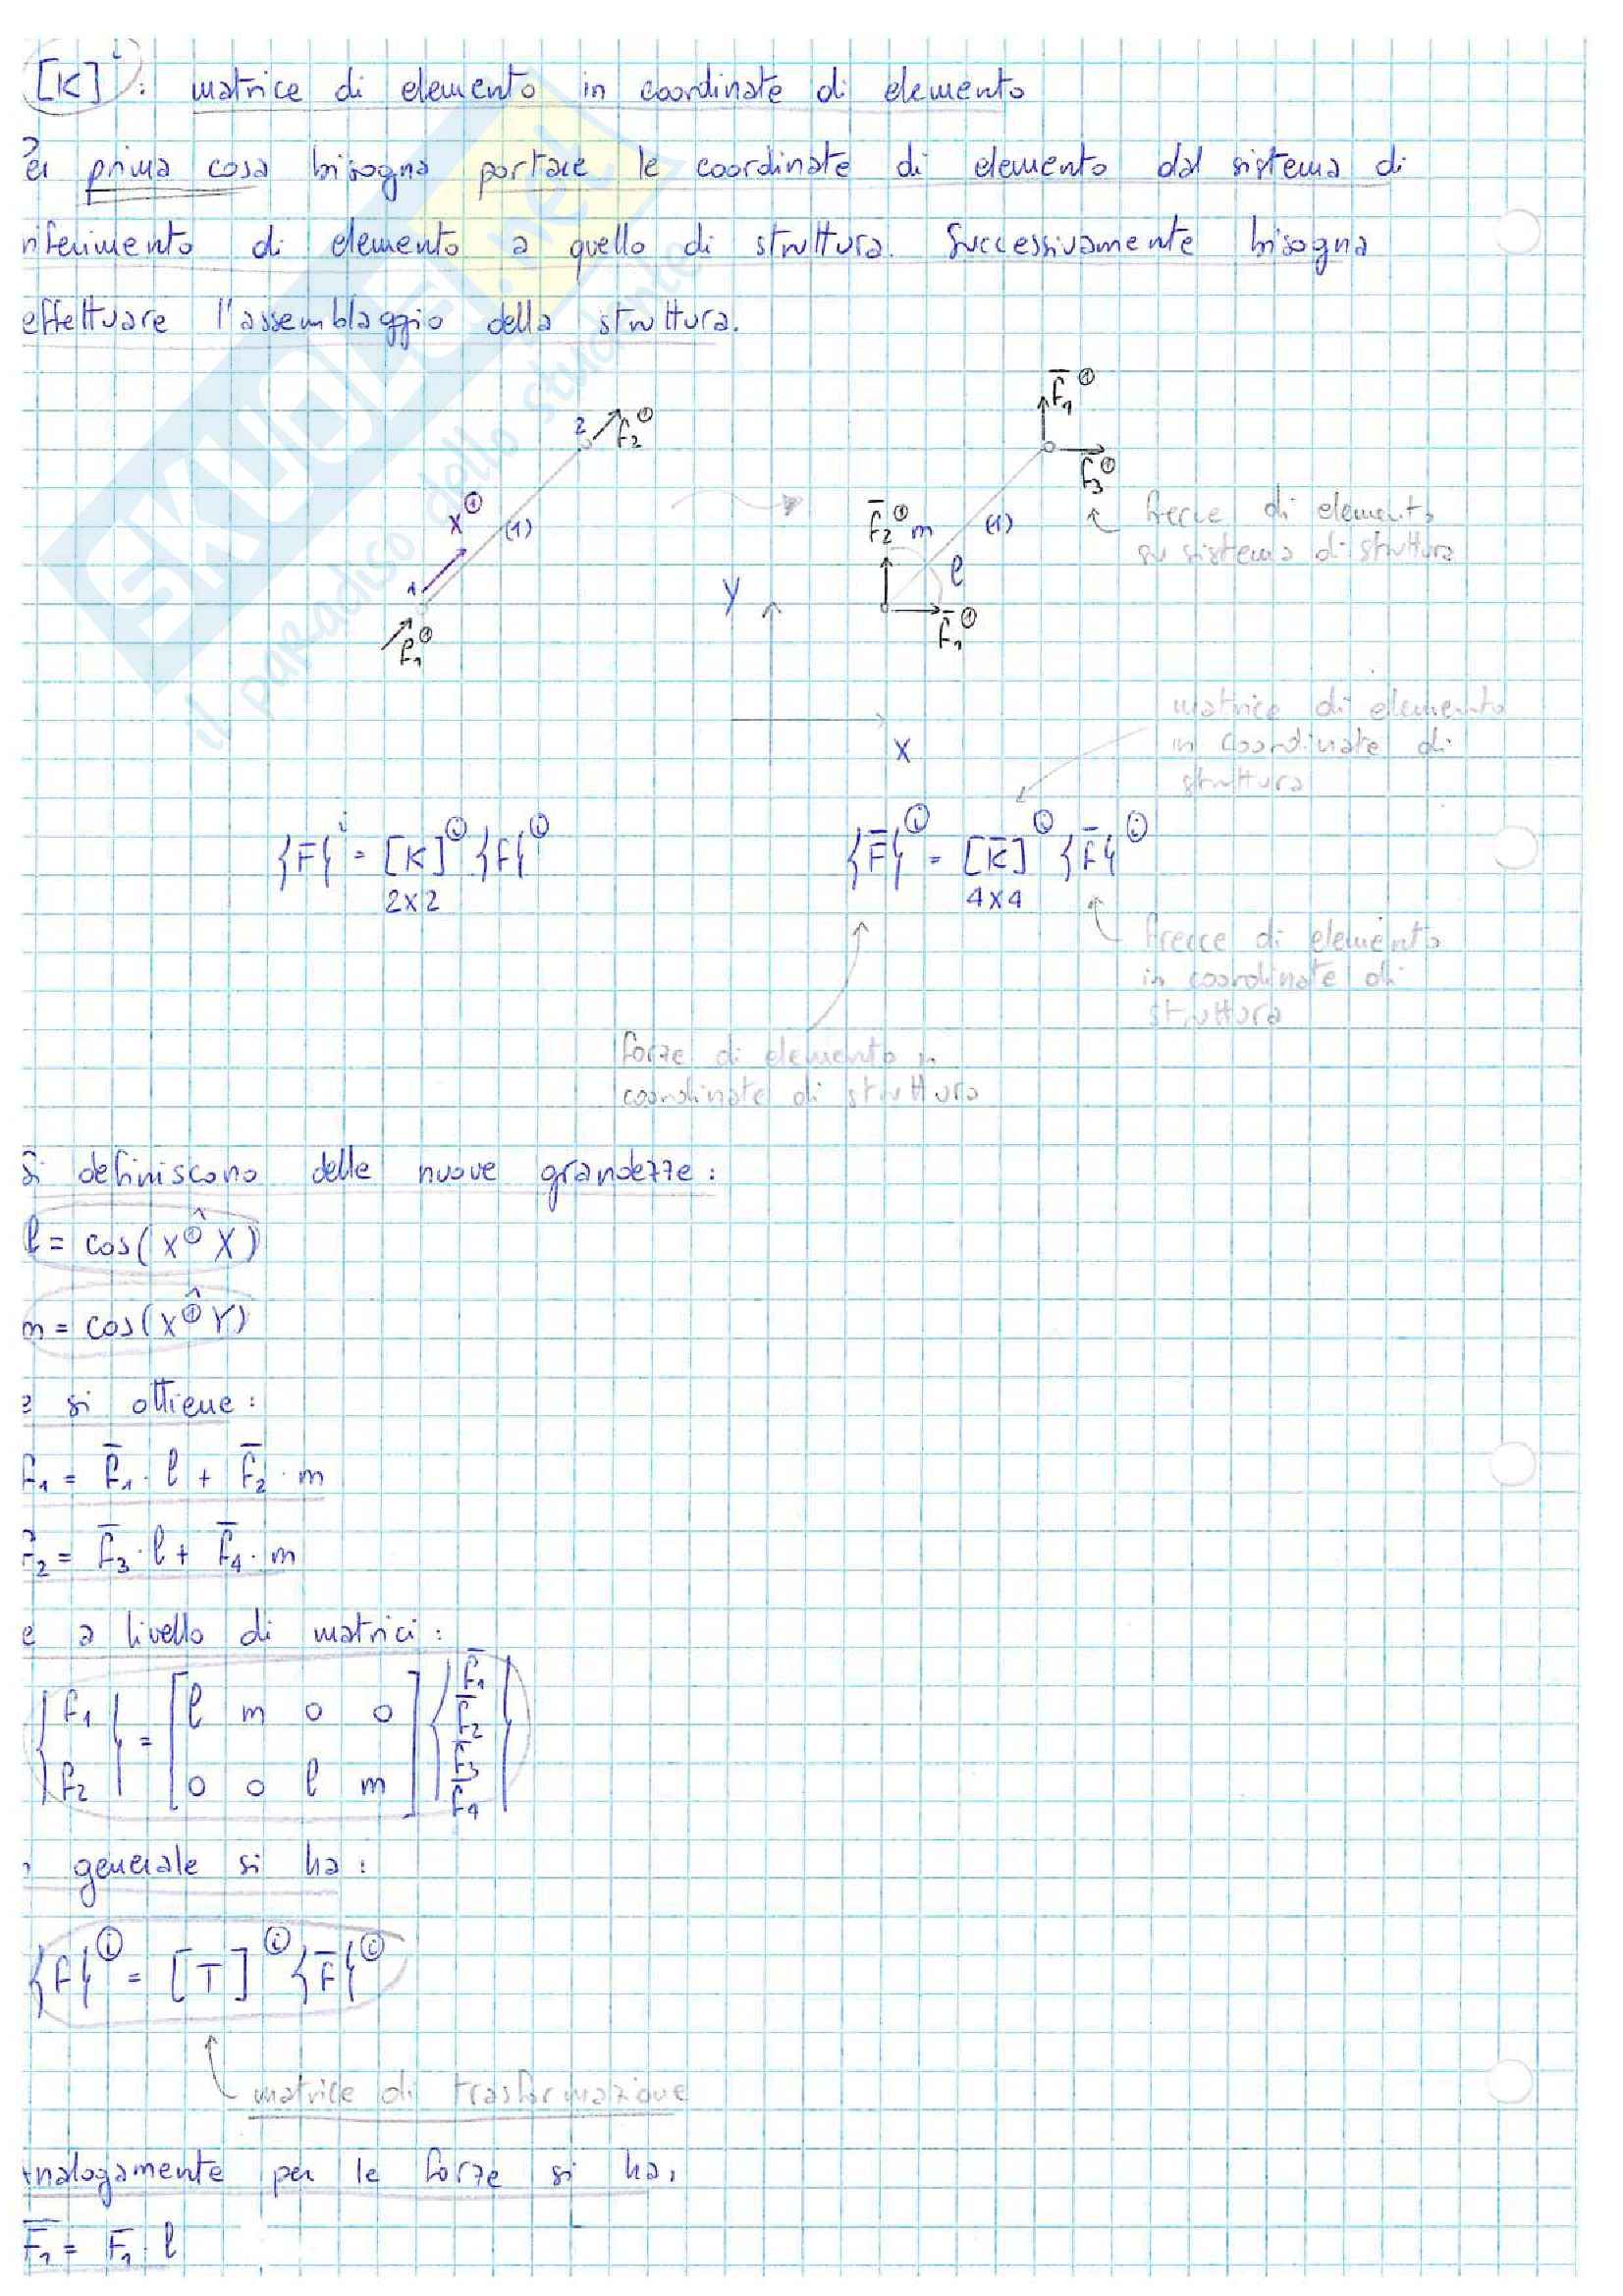 [K]ⁱ: matrice di elemento in coordinate di elemento
Per prima cosa bisogna portare le coordinate di elemento dal sistema di
riferimento di elemento a quello di struttura. Successivamente bisogna
effettuare l'assemblaggio della struttura.
SKUOLA.net
il paradiso dello studente
2 f₂①
x① (1)
1
f₁①
f̄₁①
f₃①
f̄₂① m (1)
l
f̄₁①
Y
X
frecce di elemento
su sistema di struttura
matrice di elemento
in coordinate di
struttura
{F}ⁱ = [K]ⓘ {f}ⓘ
2x2
{F̄}ⓘ = [K̄]ⓘ {f̄}ⓘ
4x4
frecce di elemento
in coordinate di
struttura
forze di elemento in
coordinate di struttura
Si definiscono delle nuove grandezze:
l = cos(x①^X)
m = cos(x①^Y)
e si ottiene:
f₁ = f̄₁·l + f̄₂·m
f₂ = f̄₃·l + f̄₄·m
e a livello di matrici:
{f₁ f₂} = [l m 0 0
0 0 l m] {f̄₁ f̄₂ f̄₃ f̄₄}
generale si ha:
{f}ⓘ = [T]ⓘ {f̄}ⓘ
matrice di trasformazione
nalogamente per le forze si ha:
F̄₁ = F₁ l